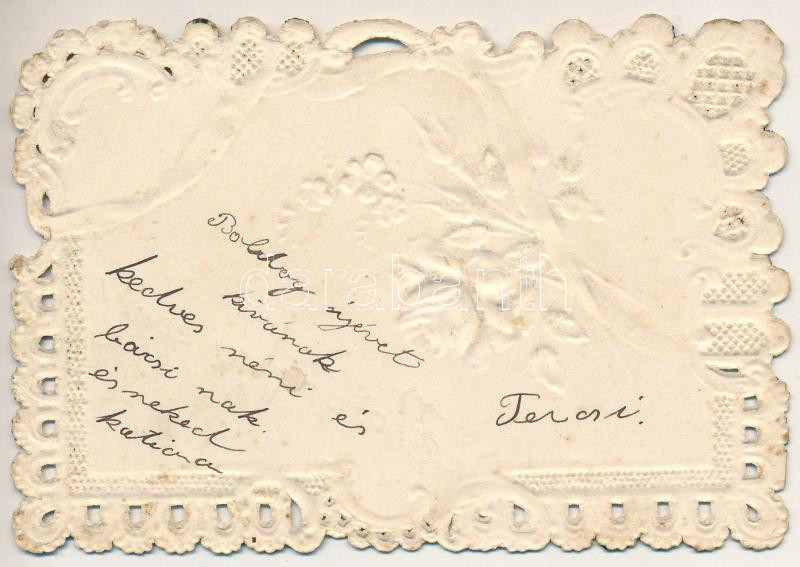 Boldog újévet
kívánok
kedves néni és
bácsi nak.
és neked
katicza
Tercsi.
darabanth